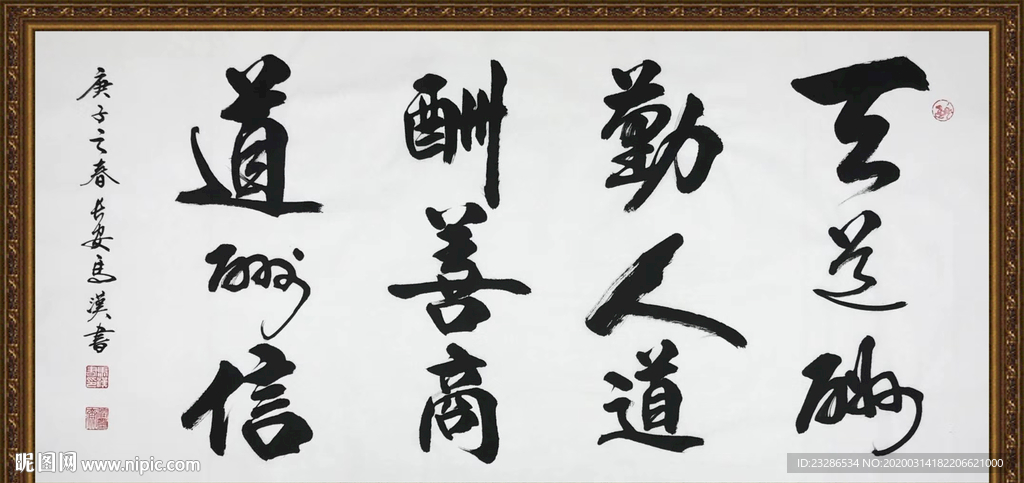 天道酬
勤人道
酬善商
道酬信
庚子之春長安馬漢書
昵图网 www.nipic.com
ID:23286534 NO:20200314182206621000